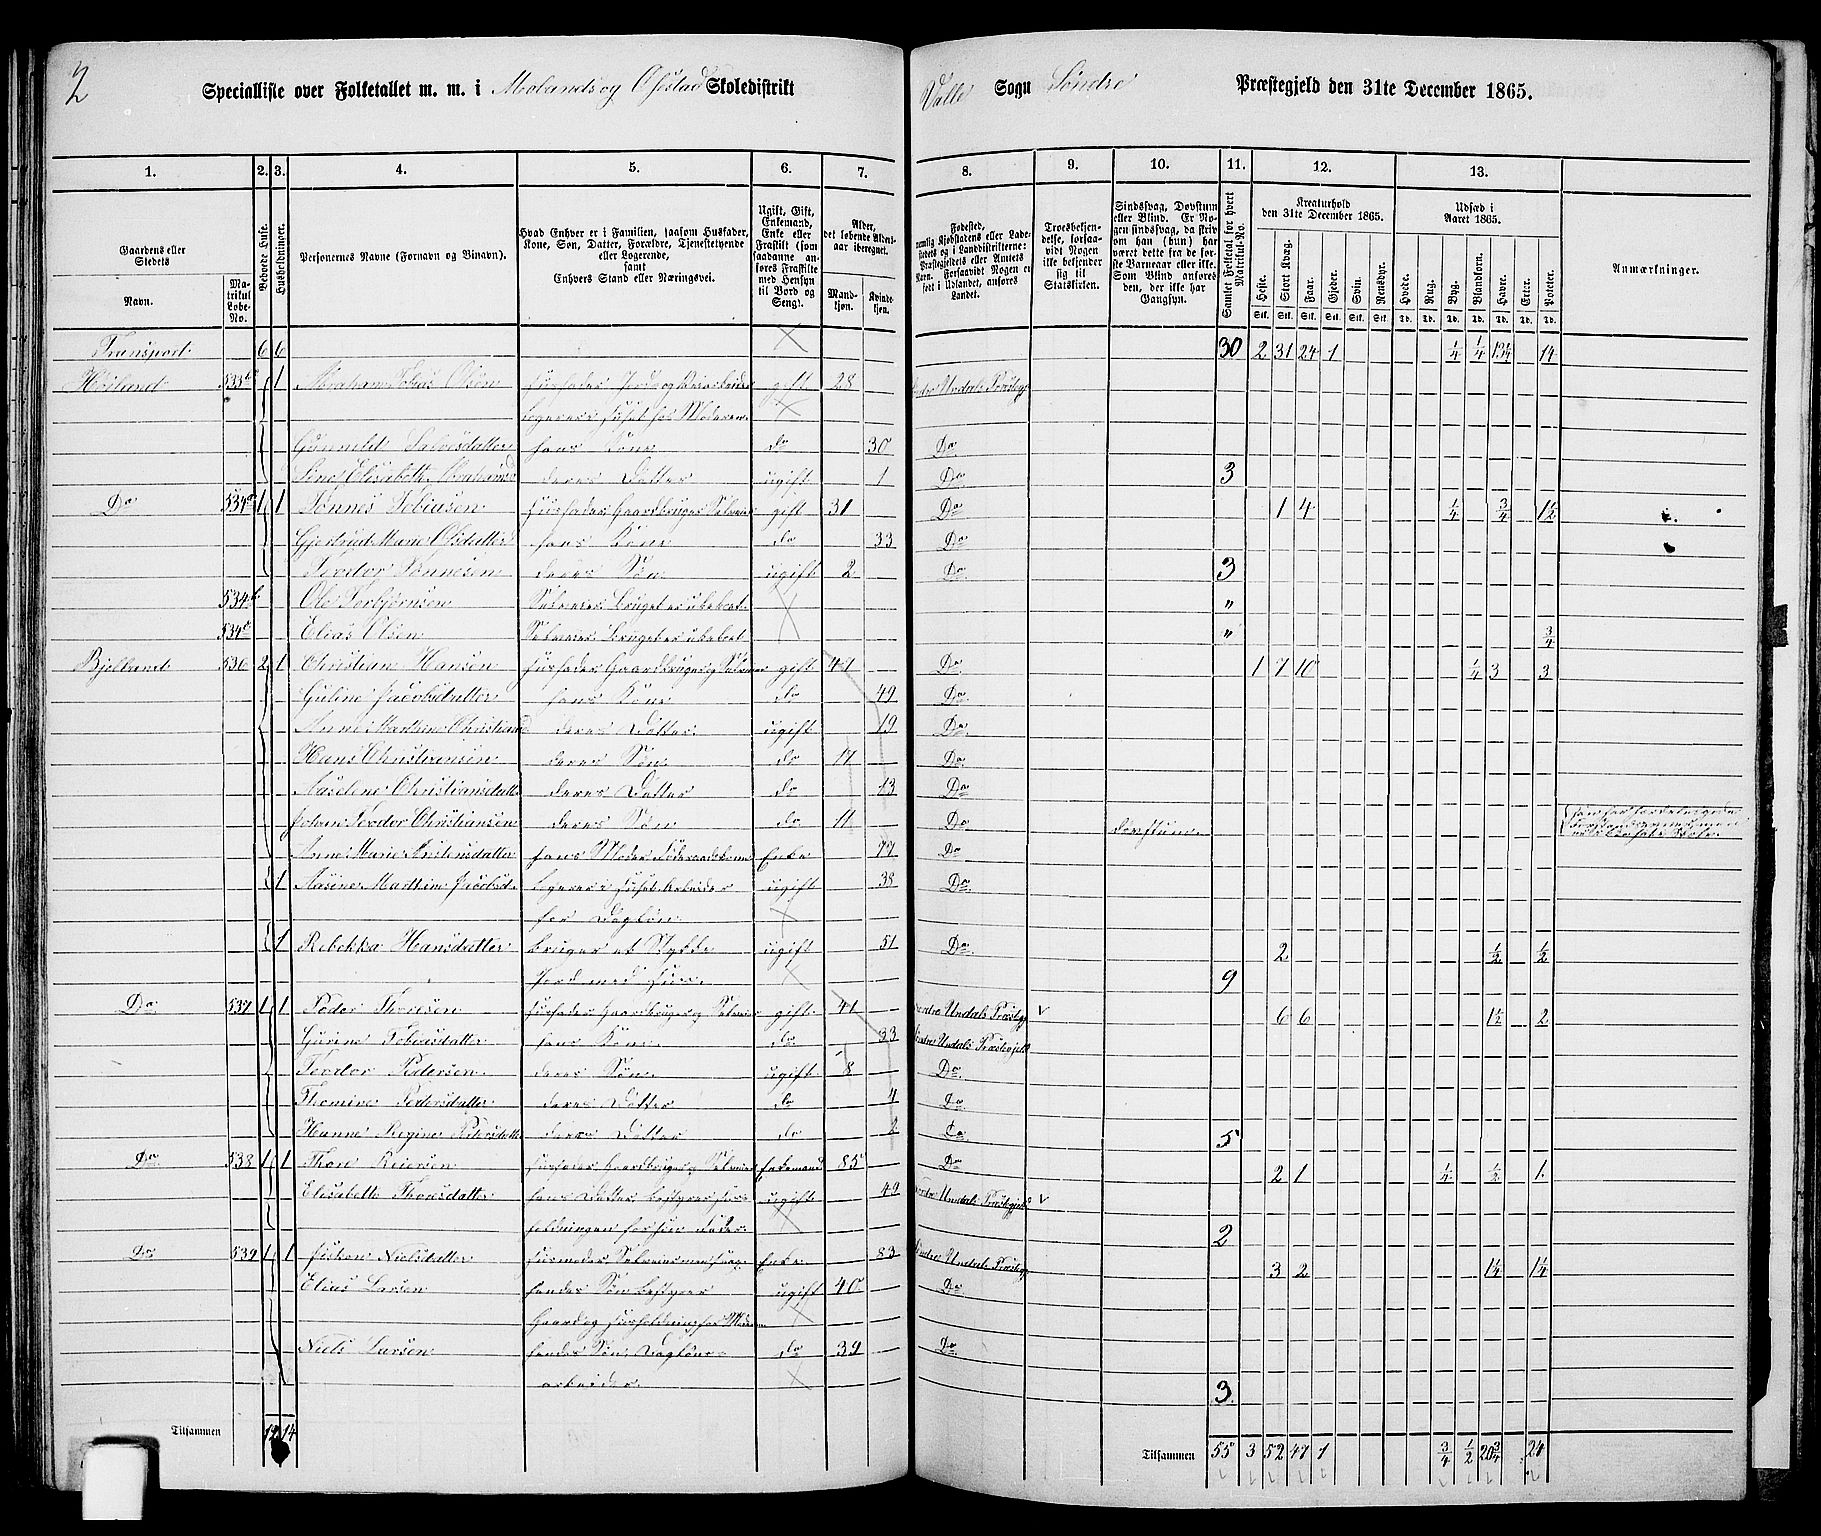 2
Specialliste over Folketallet m. m. i Molands og Øfstad Skoledistrikt
Valle Sogn Søndre Præstegjeld den 31te December 1865.
1. 2. 3. 4. 5. 6. 7. 8. 9. 10. 11. 12. 13.
Gaardens eller Stedets
Navn.
Matrikul Løbe-No.
Beboede Huse.
Husholdninger.
Personernes Navne (Fornavn og Binavn).
Hvad Enhver er i Familien, saasom Husfader, Kone, Søn, Datter, Forældre, Tjenestetyende eller Logerende, samt Enhvers Stand eller Næringsvei.
Ugift, Gift, Enkemand, Enke eller Fraskilt (som saadanne anføres Fraskilte med Hensyn til Bord og Seng).
Alder, det løbende Aldersaar iberegnet.
Mandkjøn. Kvindekjøn.
Troesbekjendelse, forsaavidt Nogen ikke bekjender sig til Statskirken.
Sindssvag, Døvstum eller Blind. Er Nogen sindssvag, da skriv om han (hun) har været dette fra de første Barneaar eller ikke. Som Blind anføres den, der ikke har Gangsyn.
Samlet Folketal for hvert Matrikul-No.
Kreaturhold den 31te December 1865.
Heste. Stort Kvæg. Faar. Gjeder. Svin. Rensdyr.
Udsæd i Aaret 1865.
Hvede. Rug. Byg. Blandkorn. Havre. Erter. Poteter.
Anmærkninger.
Transport 6 6 30 2 31 24 1 1/4 1/4 13 1/4 14
Høiland 533 1 Abraham Tobias Olsen Husfader gift 28 Søndre Undals Præstegj
Logerer i Huset hos Moderen.
Gunnild Salvesdatter hans Kone do 30 Do
Sine Elisabeth deres Datter ugift 1 Do 3
Do 534a 1 1 Tønnes Tobiasen Husfader Gaardbruger Selveier gift 31 Do 1 4 1/4 3/4 1 1/2
Gjertrud Marie Olsdatter hans Kone do 33 Do
Teodor Tønnesen deres Søn ugift 2 Do 3
534b Ole Torbjørnsen Selveier Bruget er ubeboet "
534c Elias Olsen Selveier Bruget er ubeboet " 3/4
Bjelland 536 2 1 Christian Hansen Husfader Gaardbruger og Selveier gift 47 Do 1 7 10 1/4 3 3
Guline Jacobsdatter hans Kone do 49 Do
Anne Marthine Christiansd deres Datter ugift 19 Do
Hans Christiansen deres Søn do 17 Do
Aaselene Christiansdatter deres Datter do 13 Do
Johan Teodor Christiansen deres Søn do 11 Do døvstum
Anne Marie hans Moder Føderaadskone Enke 77 Do
1 Aasine Marthine Jacobsd. logerer i Huset Arbeider ugift 38 Do
for Dagløn.
1 Rebekka Hansdatter bruger et Stykke ugift 51 Do 2 1/2 1/2
Jord med Huse. 9
Do 537 1 1 Peder Thoresen Husfader Gaardbruger og Selveier gift 41 Søndre Undals Præstegj v 6 6 1 1/2 2
Gurine Tobiasdatter hans Kone. do 33 Søndre Undals Præstegjeld
Teodor Pedersen deres Søn. ugift 8 Do
Thomine Pedersdatter deres Datter do 4 Do
Hanne Regine Pedersdatter deres Datter do 2 Do 5
Do 538 1 1 Thore Reiersen Husfader Gaardbruger og Selveier Enkemand 85 Do 2 1 1/4 1/2 1
Elisabeth Thoresdatter hans Datter bestyrer Hus- ugift 49 Søndre Undals Præstegjeld v
holdningen for sin Fader. 2
Do 539 1 1 Nielsdatter Husmoder Enke 83 Søndre Undals Præstegj 3 2 1 1/4 1 1/4
Elias Larsen hendes Søn bestyrer ugift 40 Do
Gaard og Husholdning for Moderen
Niels Larsen hendes Søn, Dagløns- do 39 Do
arbeider. 3.
Tilsammen 12 14
Tilsammen 55 3 52 47 1 3/4 1/2 20 3/4 24